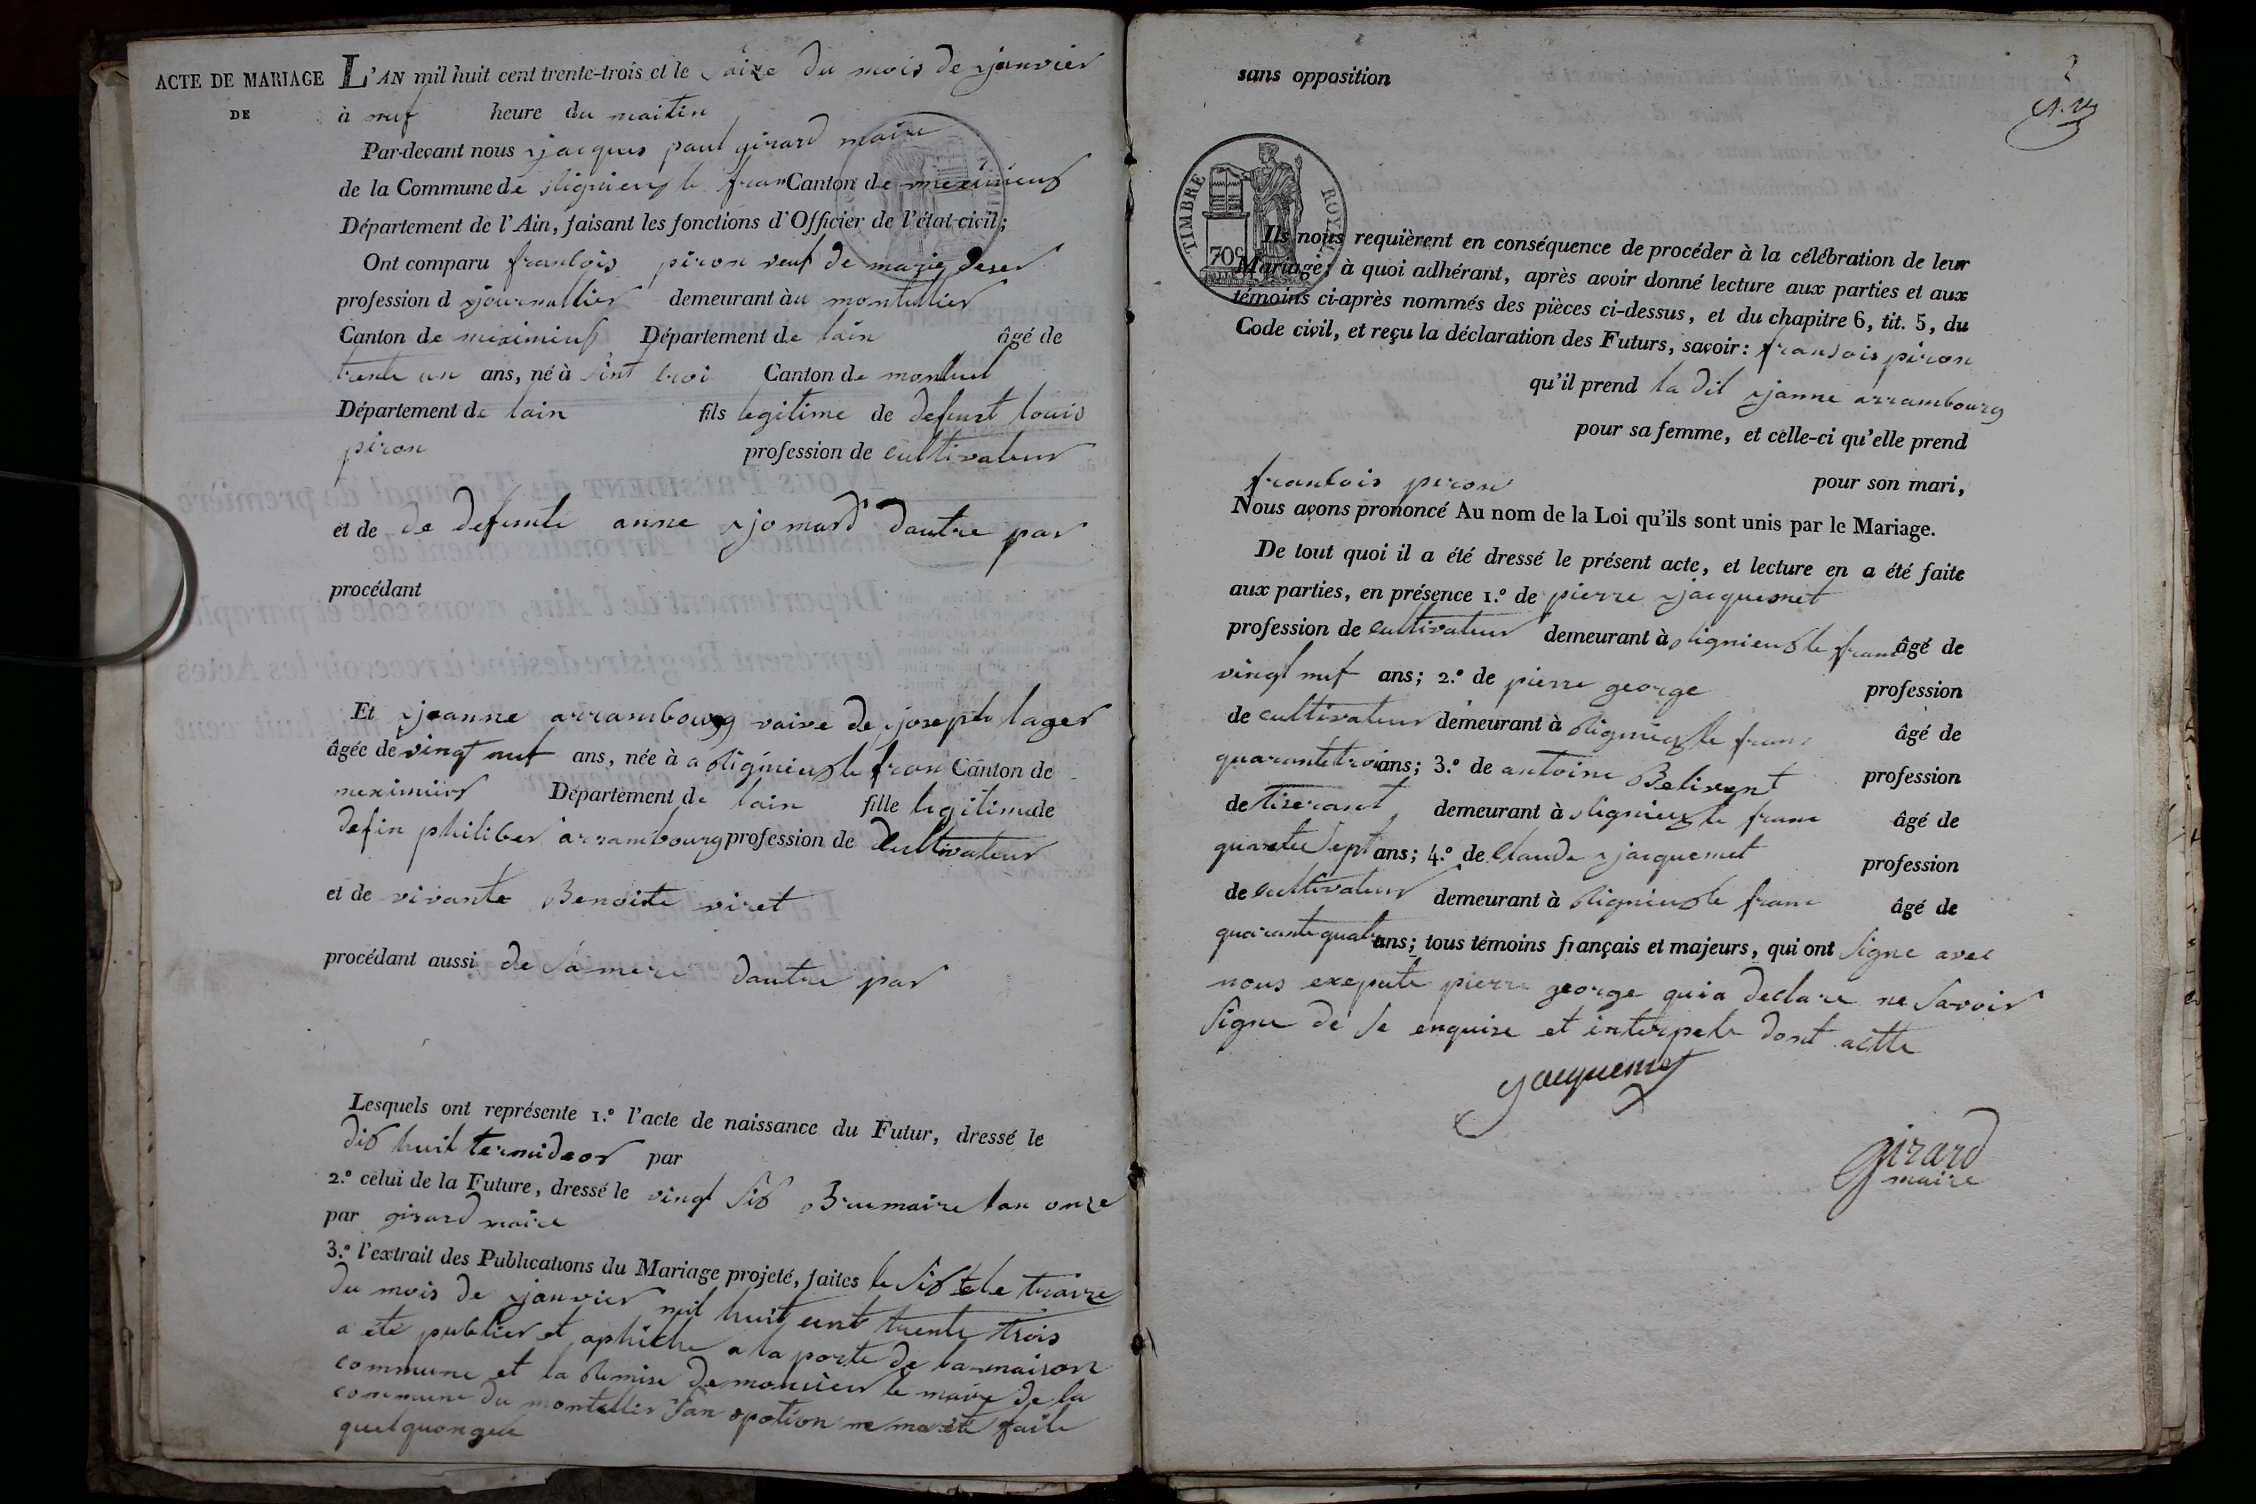 ACTE DE MARIAGE
DE
L'AN mil huit cent trente-trois et le saize du mois de janvier
à neuf heure du maitin
Par-devant nous jacques paul girard maire
de la Commune de rignieux le fran Canton de meximieux
Département de l'Ain, faisant les fonctions d'Officier de l'état-civil;
Ont comparu franlois piron veuf de marie
profession d journallier demeurant àu montellier
Canton de meximieux Département de lain âgé de
trente un ans, né à sint croi Canton de montluel
Département de lain fils legitime de defunt louis
piron profession de cultivateur
et de de defunte anne jomard dautre par
procédant
Et jeanne arrambourg vaive de joseph lager
âgée de vingt neuf ans, née à a rignieux le fran Canton de
meximieux Département de lain fille legitime de
defin philiber arrambourg profession de cultivateur
et de vivante Benoite viret
procédant aussi de sa mere dautre par
Lesquels ont représente 1.º l'acte de naissance du Futur, dressé le
dix huit termidor par
2.º celui de la Future, dressé le vingt six Brumaire lan onze
par girard maire
3.º l'extrait des Publications du Mariage projeté, faites le six et le traize
du mois de janvier mil huit cent trente trois
a été publier et aphiche a la porte de la maison
commune et la remise de monsieur le maire de la
commune du montellier san opotion ne ma été faite
quelquonque
2
sans opposition
TIMBRE ROYAL
70c
Ils nous requièrent en conséquence de procéder à la célébration de leur
Mariage; à quoi adhérant, après avoir donné lecture aux parties et aux
témoins ci-après nommés des pièces ci-dessus, et du chapitre 6, tit. 5, du
Code civil, et reçu la déclaration des Futurs, savoir: fransois piron
qu'il prend la dit janne arrambourg
pour sa femme, et celle-ci qu'elle prend
franlois piron pour son mari,
Nous avons prononcé Au nom de la Loi qu'ils sont unis par le Mariage.
De tout quoi il a été dressé le présent acte, et lecture en a été faite
aux parties, en présence 1.º de pierre jacquemet
profession de cultivateur demeurant à rignieux le franc âgé de
vingt neuf ans; 2.º de pierre george profession
de cultivateur demeurant à rignieux le franc âgé de
quarante trois ans; 3.º de antoine Belivent profession
de tiserant demeurant à rignieux le franc âgé de
quarante sept ans; 4.º de Claude jacquemet profession
de cultivateur demeurant à rignieux le franc âgé de
quarante quatre ans; tous témoins français et majeurs, qui ont signe avec
nous exepute pierre george qui a declare ne savoir
signe de se enquise et interpele dont actte
jacquemet
girard
maire